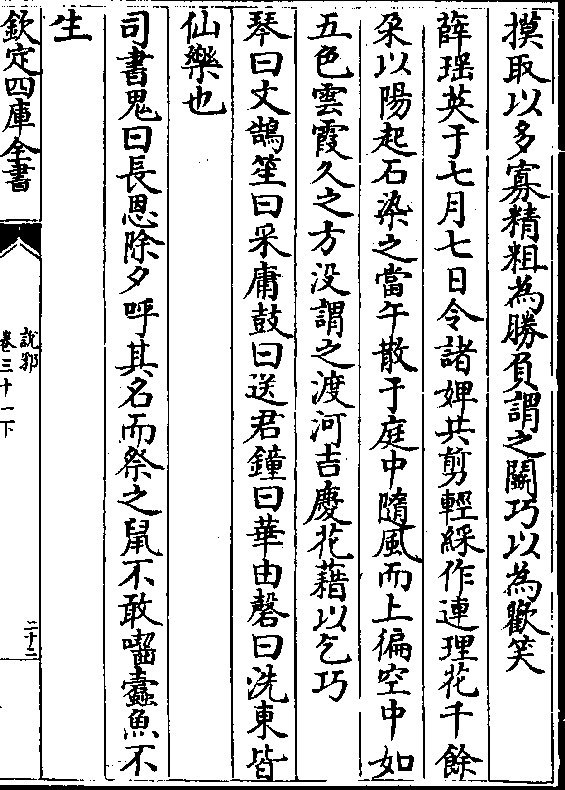 摸取以多寡精粗為勝負謂之鬬巧以為歡笑
薛瑶英于七月七日令諸婢共剪輕綵作連理花千餘
朵以陽起石染之當午散于庭中隨風而上徧空中如
五色雲霞久之方没謂之渡河吉慶花藉以乞巧
琴曰文鵠笙曰采庸鼓曰送君鐘曰華由磬曰洗東皆
仙樂也
司書鬼曰長恩除夕呼其名而祭之鼠不敢囓蠧魚不
生
欽定四庫全書
說郛
卷三十一下
二十二